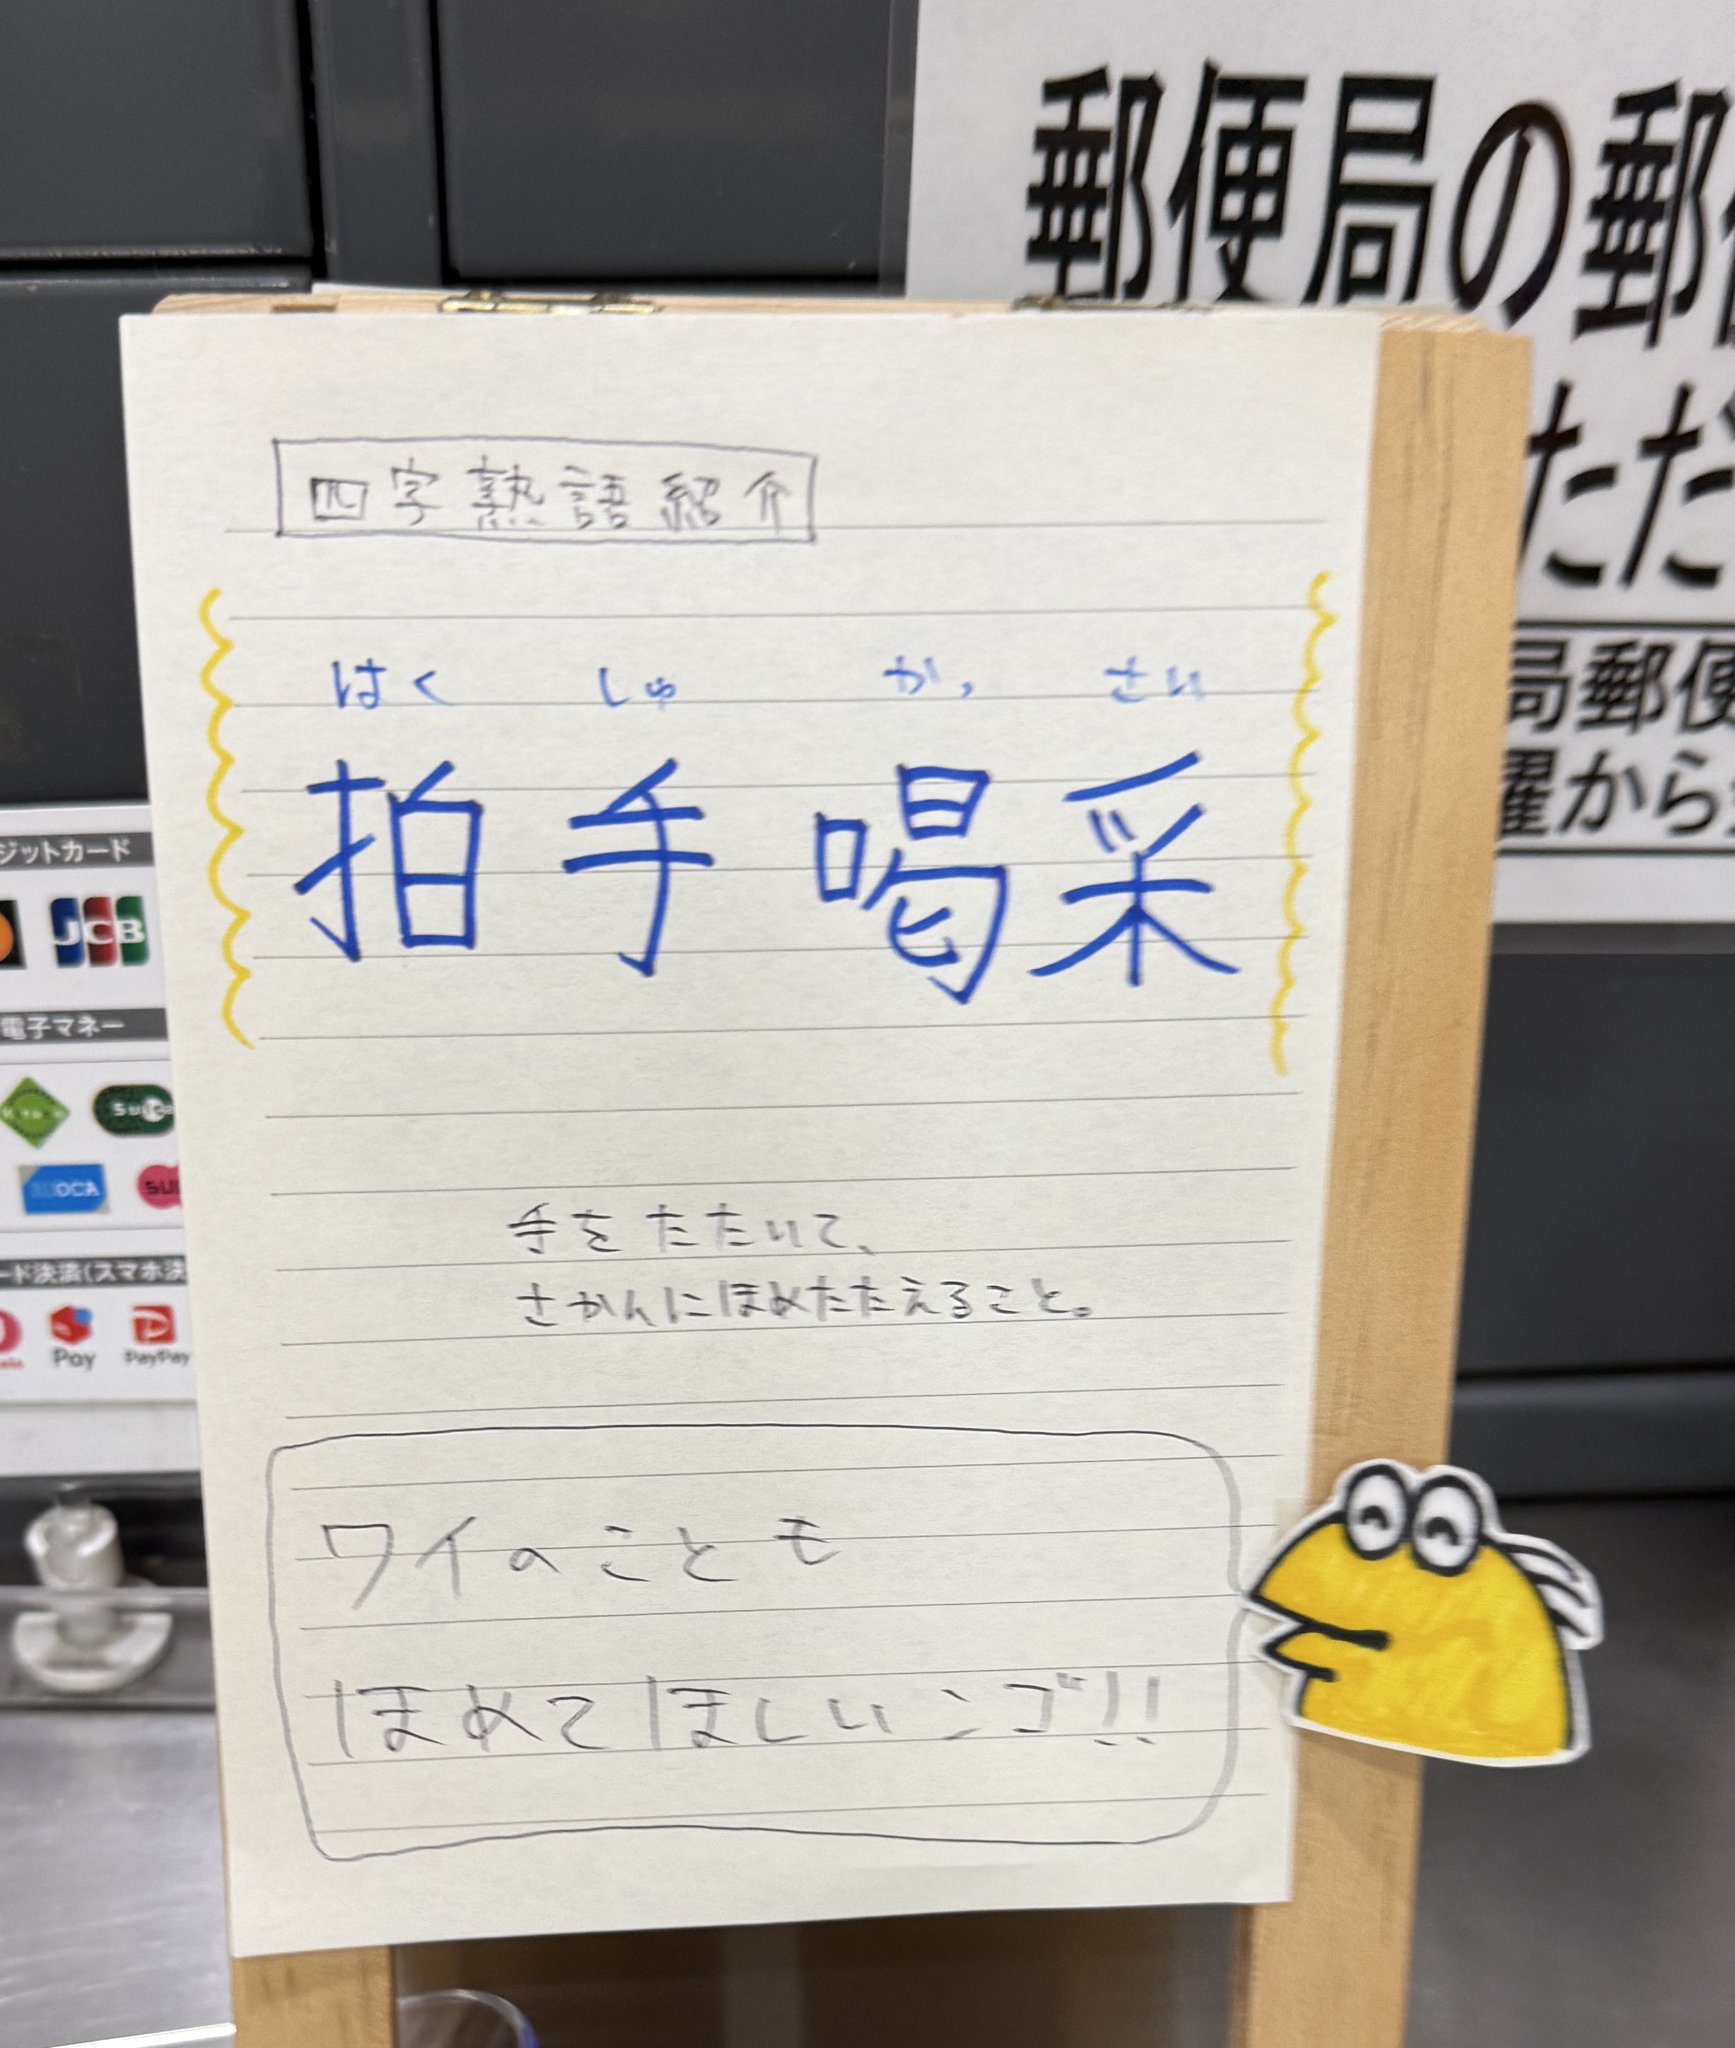 郵便局の郵
ただ
局郵便
曜から
四字熟語紹介
はく しゅ かっ さい
拍手喝采
手をたたいて、
さかんにほめたたえること。
ワイのことも
ほめてほしいンゴ!!
ジットカード
JCB
電子マネー
ード決済(スマホ決
Pay
PayPay